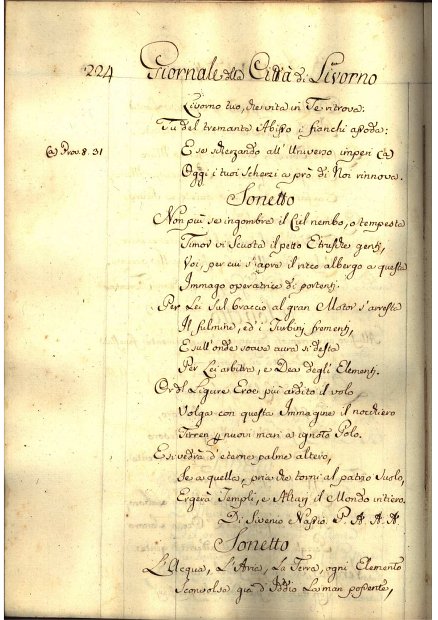 224 Giornale della Città di Livorno
Livorno tuo, che vita in Te ritrova:
Tu del tremante Abisso i fianchi assoda:
(a) Prov. 8. 31
E se scherzando all'Universo imperi (a)
Oggi i tuoi Scherzi a prò di Noi rinnova.
Sonetto
Non più se ingombre il Ciel nembo, o tempesta
Timor vi Scuota il petto Etrusche genti,
Voi, per cui s'apre il ricco albergo a questa
Immago operatrice di portenti.
Per Lei sul braccio al gran Motor s'arresta
Il fulmine, ed i Turbini frementi,
E sull'onde soave aura si desta
Per Lei arbitra, e Dea degli Elementi.
Or del Ligure Eroe più ardito il volo
Volga con questa Immagine il nocchiero
Tirren p nuovi mari a ignoto Polo.
E si vedrà d'eterne palme altero,
Se a quella, pria che torni al patrio Suolo,
Ergerà Templi, e Altarj il Mondo intiero.
Di P. A. A. A.
Sonetto
L'Acqua, L'Aria, La Terra, ogni Elemento
Sconvolse già d'Iddio La man possente,